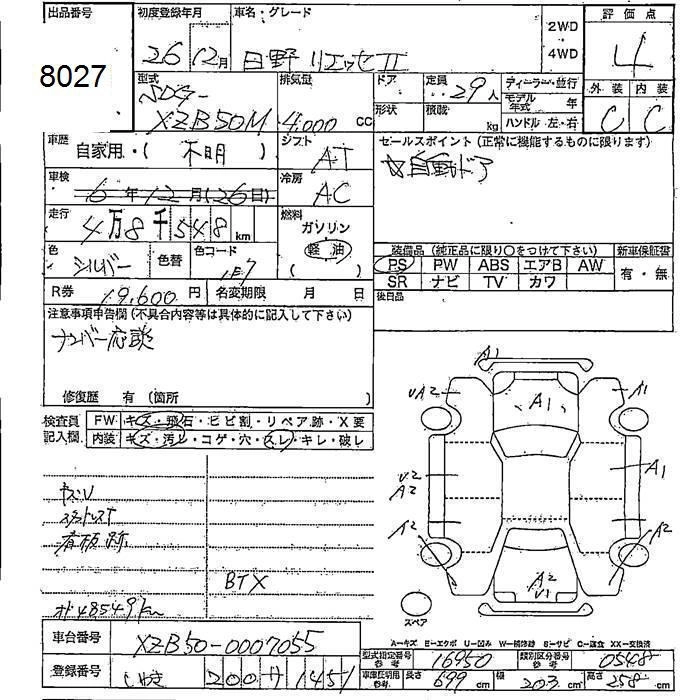 出品番号 初度登録年月 車名・グレード 評価点
8027 26 12月 日野 リエッセⅡ 2WD 4WD 4
型式 SDG- XZB50M 排気量 4,000 CC ドア 定員 29人 ディーラー・並行 外装 内装
形状 積載 kg モデル年式 年 ハンドル 左・右 C C
車歴 自家用・( 不明 ) シフト AT セールスポイント(正常に機能するものに限ります)
☆自動ドア
車検 6年12月(26日) 冷房 AC
走行 4万8千548km 燃料 ガソリン 軽油 ( )
色 シルバー 色替 色コード 1E7
装備品 (純正品に限り○をつけて下さい) 新車保証書
PS PW ABS エアB AW 有・無
SR ナビ TV カワ
R券 19,600円 名変期限 月 日 後日品
注意事項申告欄(不具合内容等は具体的に記入して下さい)
ナンバー応談
修復歴 有 (箇所 )
検査員記入欄 FW キズ・飛石・ヒビ割・リペア跡・X要
内装 キズ・汚レ・コゲ・穴・スレ・キレ・破レ
A1
UA2 A1 A1
U2 A2 A1
A2 A2
A2 U1
看板跡
BTX
スペア
A-キズ E-エクボ U-凹み W-補修跡 S-サビ C-腐食 XX-交換済
車台番号 XZB50-0007055 型式指定番号 参考 16950 類別区分番号 参考 0548
登録番号 いわき 200 サ 1451 車庫証明用 参考 長さ 699 cm 幅 203 cm 高さ 258 cm